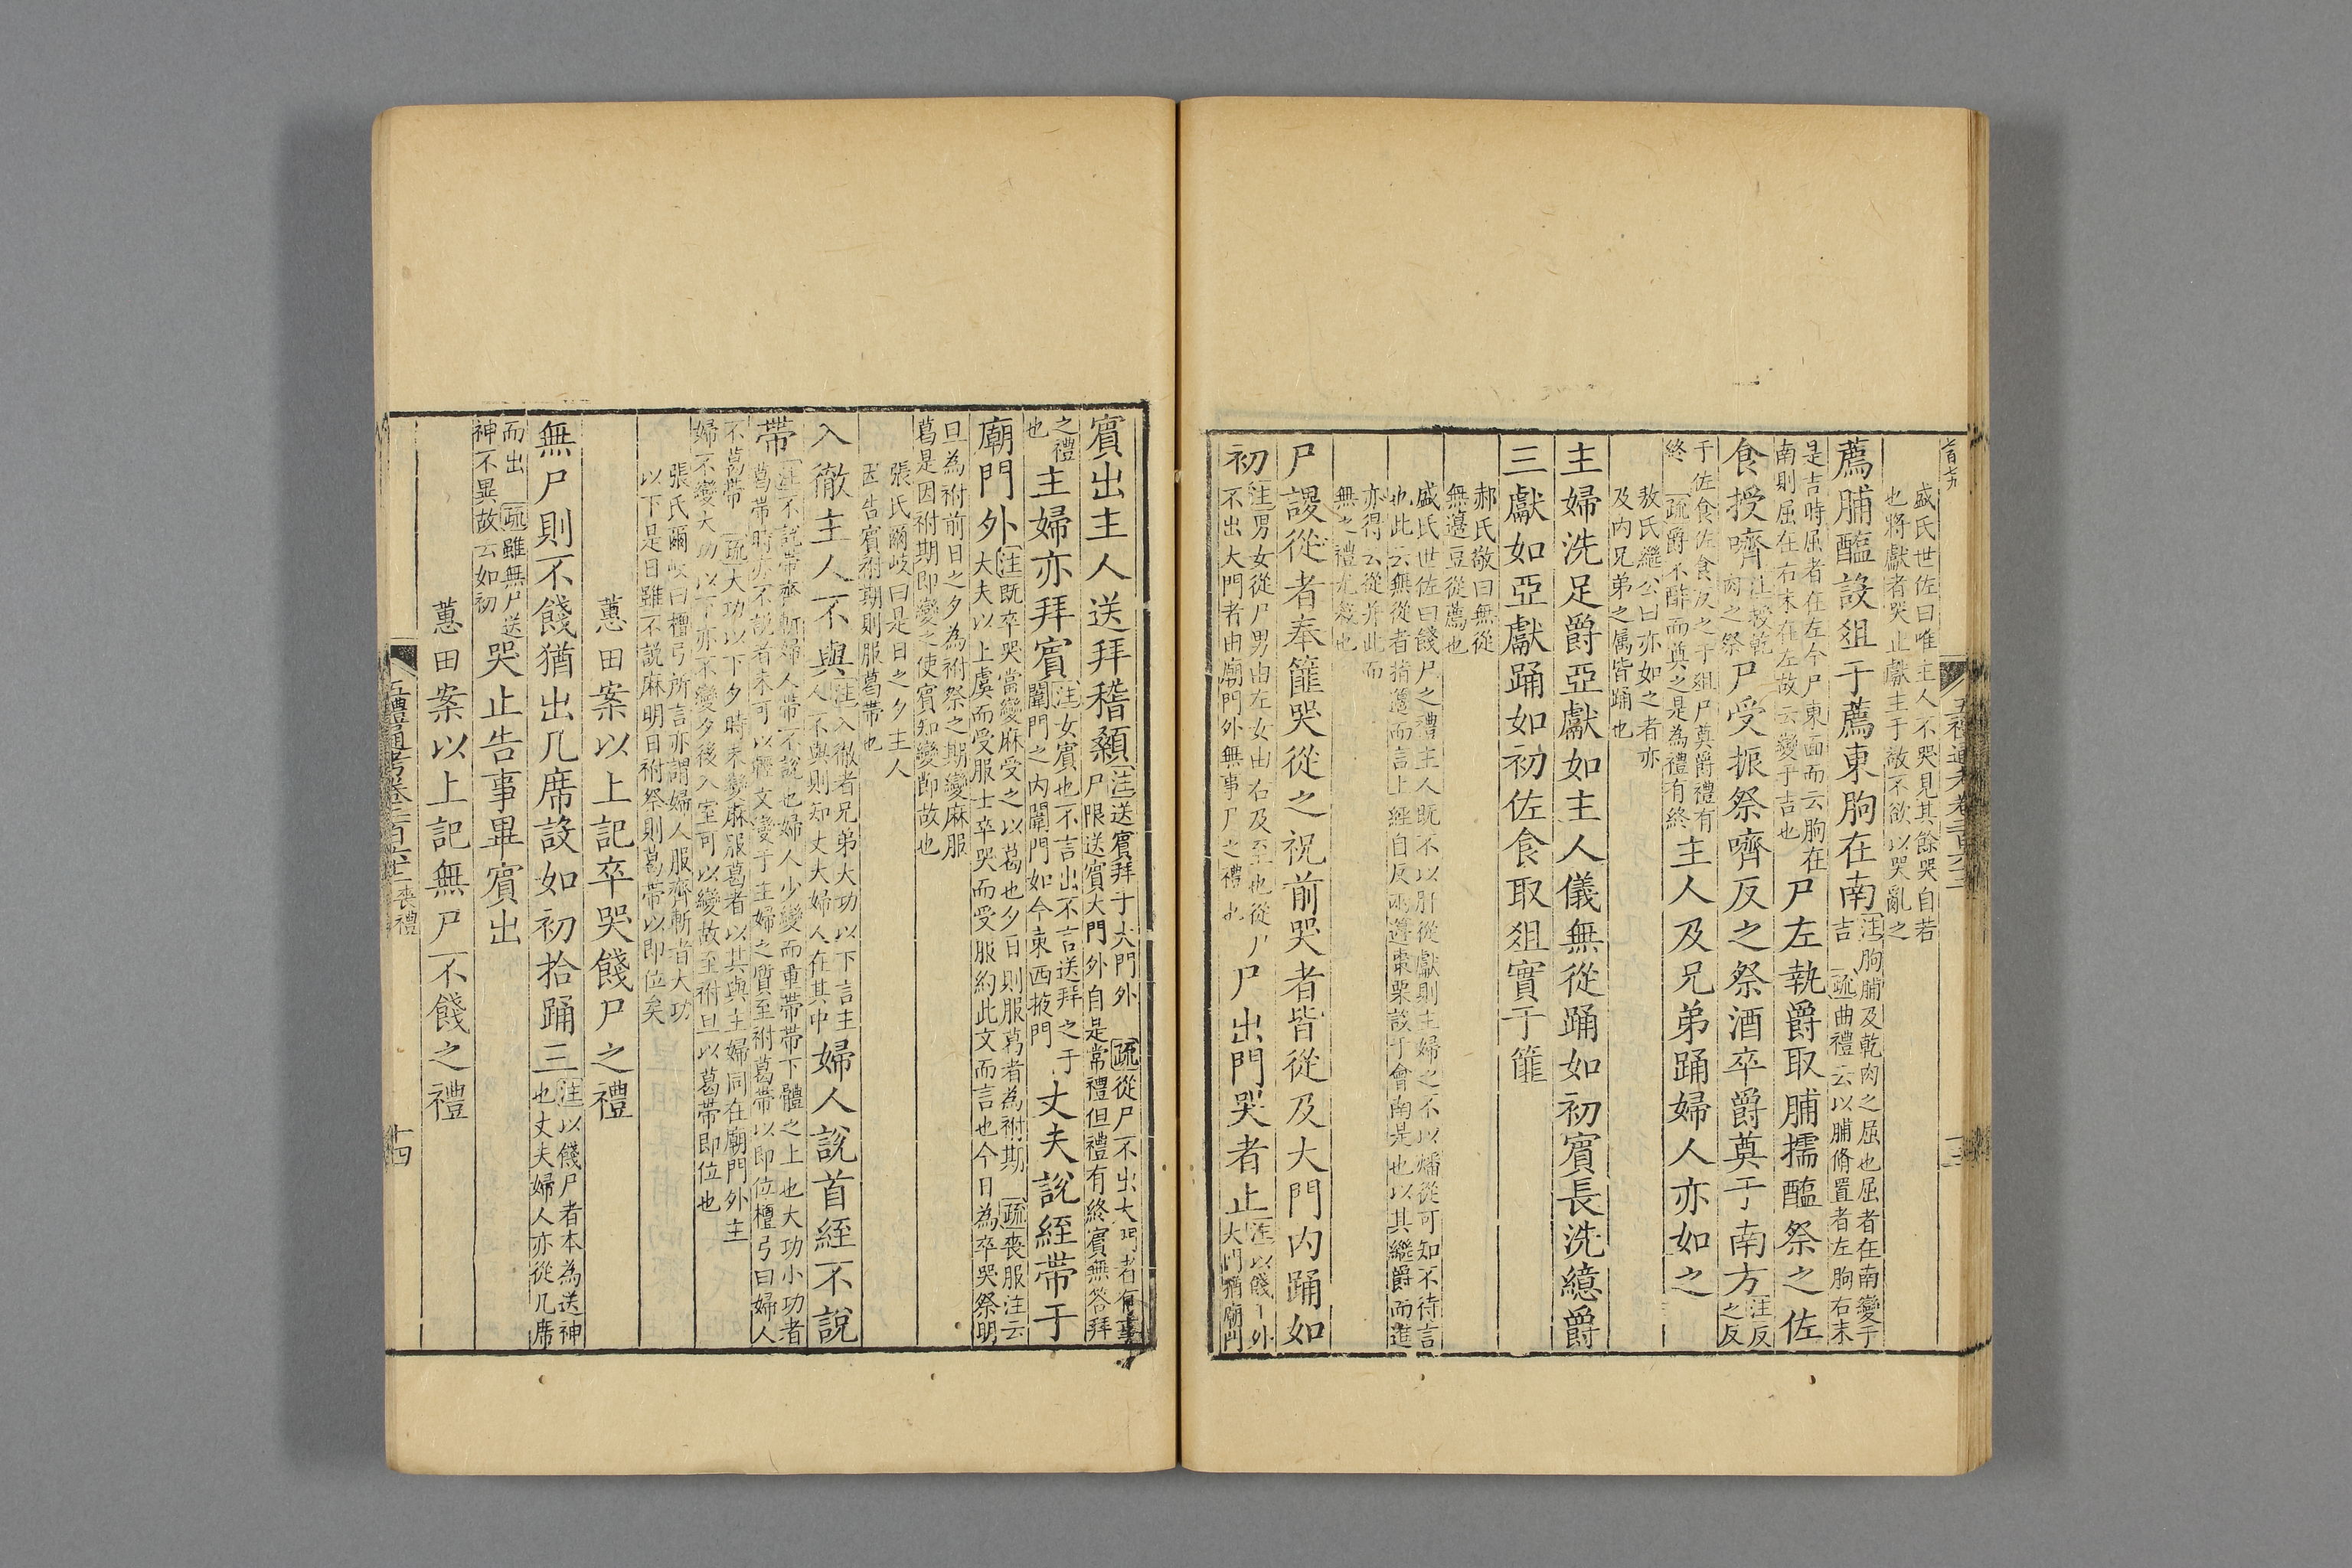 盛氏世佐曰唯主人不哭見其餘哭自若
也將獻者哭止獻主于敬不欲以哭亂之
薦脯醢設俎于薦東朐在南注朐脯及乾肉之屈也屈者在南變于
吉 疏曲禮云以脯脩置者左朐右末
是吉時屈者在左今尸東面而云朐在
南則屈在右末在左故云變于吉也尸左執爵取脯擩醢祭之佐
食授嚌注授乾
肉之祭尸受振祭嚌反之祭酒卒爵奠于南方注反
之反
于佐食佐食反之于俎尸奠爵禮有
終 疏爵不酢而奠之是為禮有終主人及兄弟踊婦人亦如之
敖氏繼公曰亦如之者亦
及内兄弟之属皆踊也
主婦洗足爵亞獻如主人儀無從踊如初賓長洗繶爵
三獻如亞獻踊如初佐食取俎實于篚
郝氏敬曰無從
無籩豆從薦也
盛氏世佐曰餞尸之禮主人既不以肝從獻則主婦之不以燔從可知不待言
也此云無從者指籩而言上經自反兩籩棗栗設于會南是也以其繼爵而進
亦得云從并此而
無之禮尤殺也
尸謖從者奉篚哭從之祝前哭者皆從及大門内踊如
初注男女從尸男由左女由右及至也從尸
不出大門者由廟門外無事尸之禮也尸出門哭者止注以餞于外
大門猶廟門
賓出主人送拜稽顙注送賓拜于大門外 疏從尸不出大門者有事
尸限送賓大門外自是常禮但禮有終賓無答拜
之禮
也主婦亦拜賓注女賓也不言出不言送拜之于
闈門之内闈門如今東西掖門丈夫說絰帶于
廟門外注既卒哭當變麻受之以葛也夕日則服葛者為祔期 疏喪服注云
大夫以上虞而受服士卒哭而受服約此文而言也今日為卒哭祭明
旦為祔前日之夕為祔祭之期變麻服
葛是因祔期即變之使賓知變節故也
張氏爾岐曰是日之夕主人
因告賓祔期則服葛帶也
入徹主人不與注入徹者兄弟大功以下言主
人不與則知丈夫婦人在其中婦人說首絰不說
帶注不說帶齊斬婦人帶不說也婦人少變而重帶帶下體之上也大功小功者
葛帶時亦不說者未可以輕文變于主婦之質至祔葛帶以即位檀弓曰婦人
不葛帶 疏大功以下夕時未變麻服葛者以其與主婦同在廟門外主
婦不變大功以下亦不變夕後入室可以變故至祔旦以葛帶即位也
張氏爾岐曰檀弓所言亦謂婦人服齊斬者大功
以下是日雖不說麻明日祔祭則葛帶以即位矣
蕙田案以上記卒哭餞尸之禮
無尸則不餞猶出几席設如初拾踊三注以餞尸者本為送神
也丈夫婦人亦從几席
而出 疏雖無尸送
神不異故云如初哭止告事畢賓出
蕙田案以上記無尸不餞之禮
五禮通考卷二百六十二 喪禮
十四